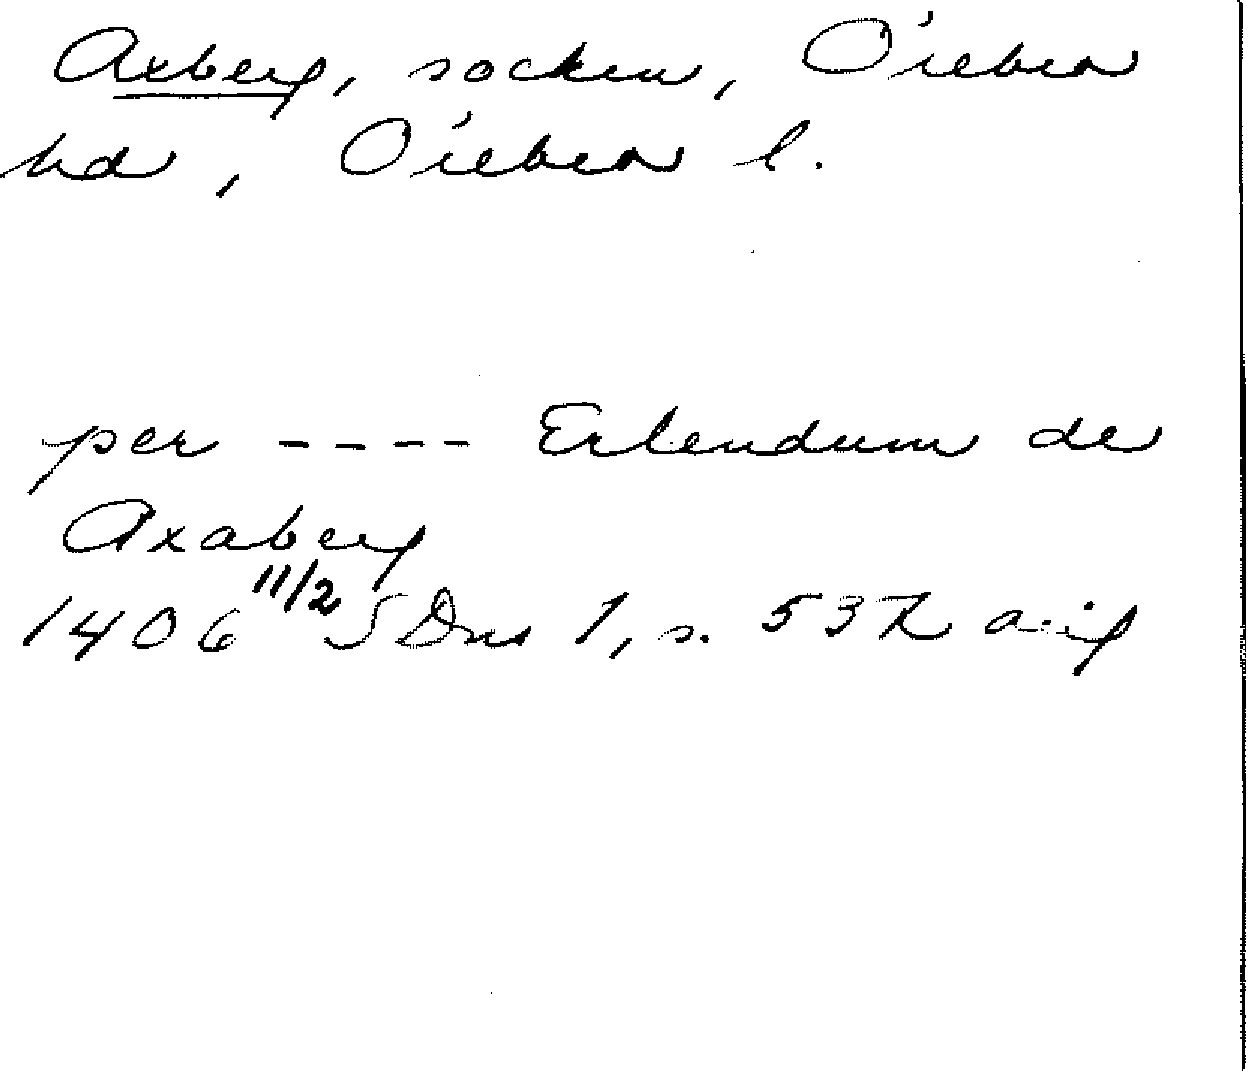 Axberg, socken, Örebro
hd, Örebro l.
per ---- Erlendum de
Axaberg
1406 11/2 SDns 1, s. 532 avig